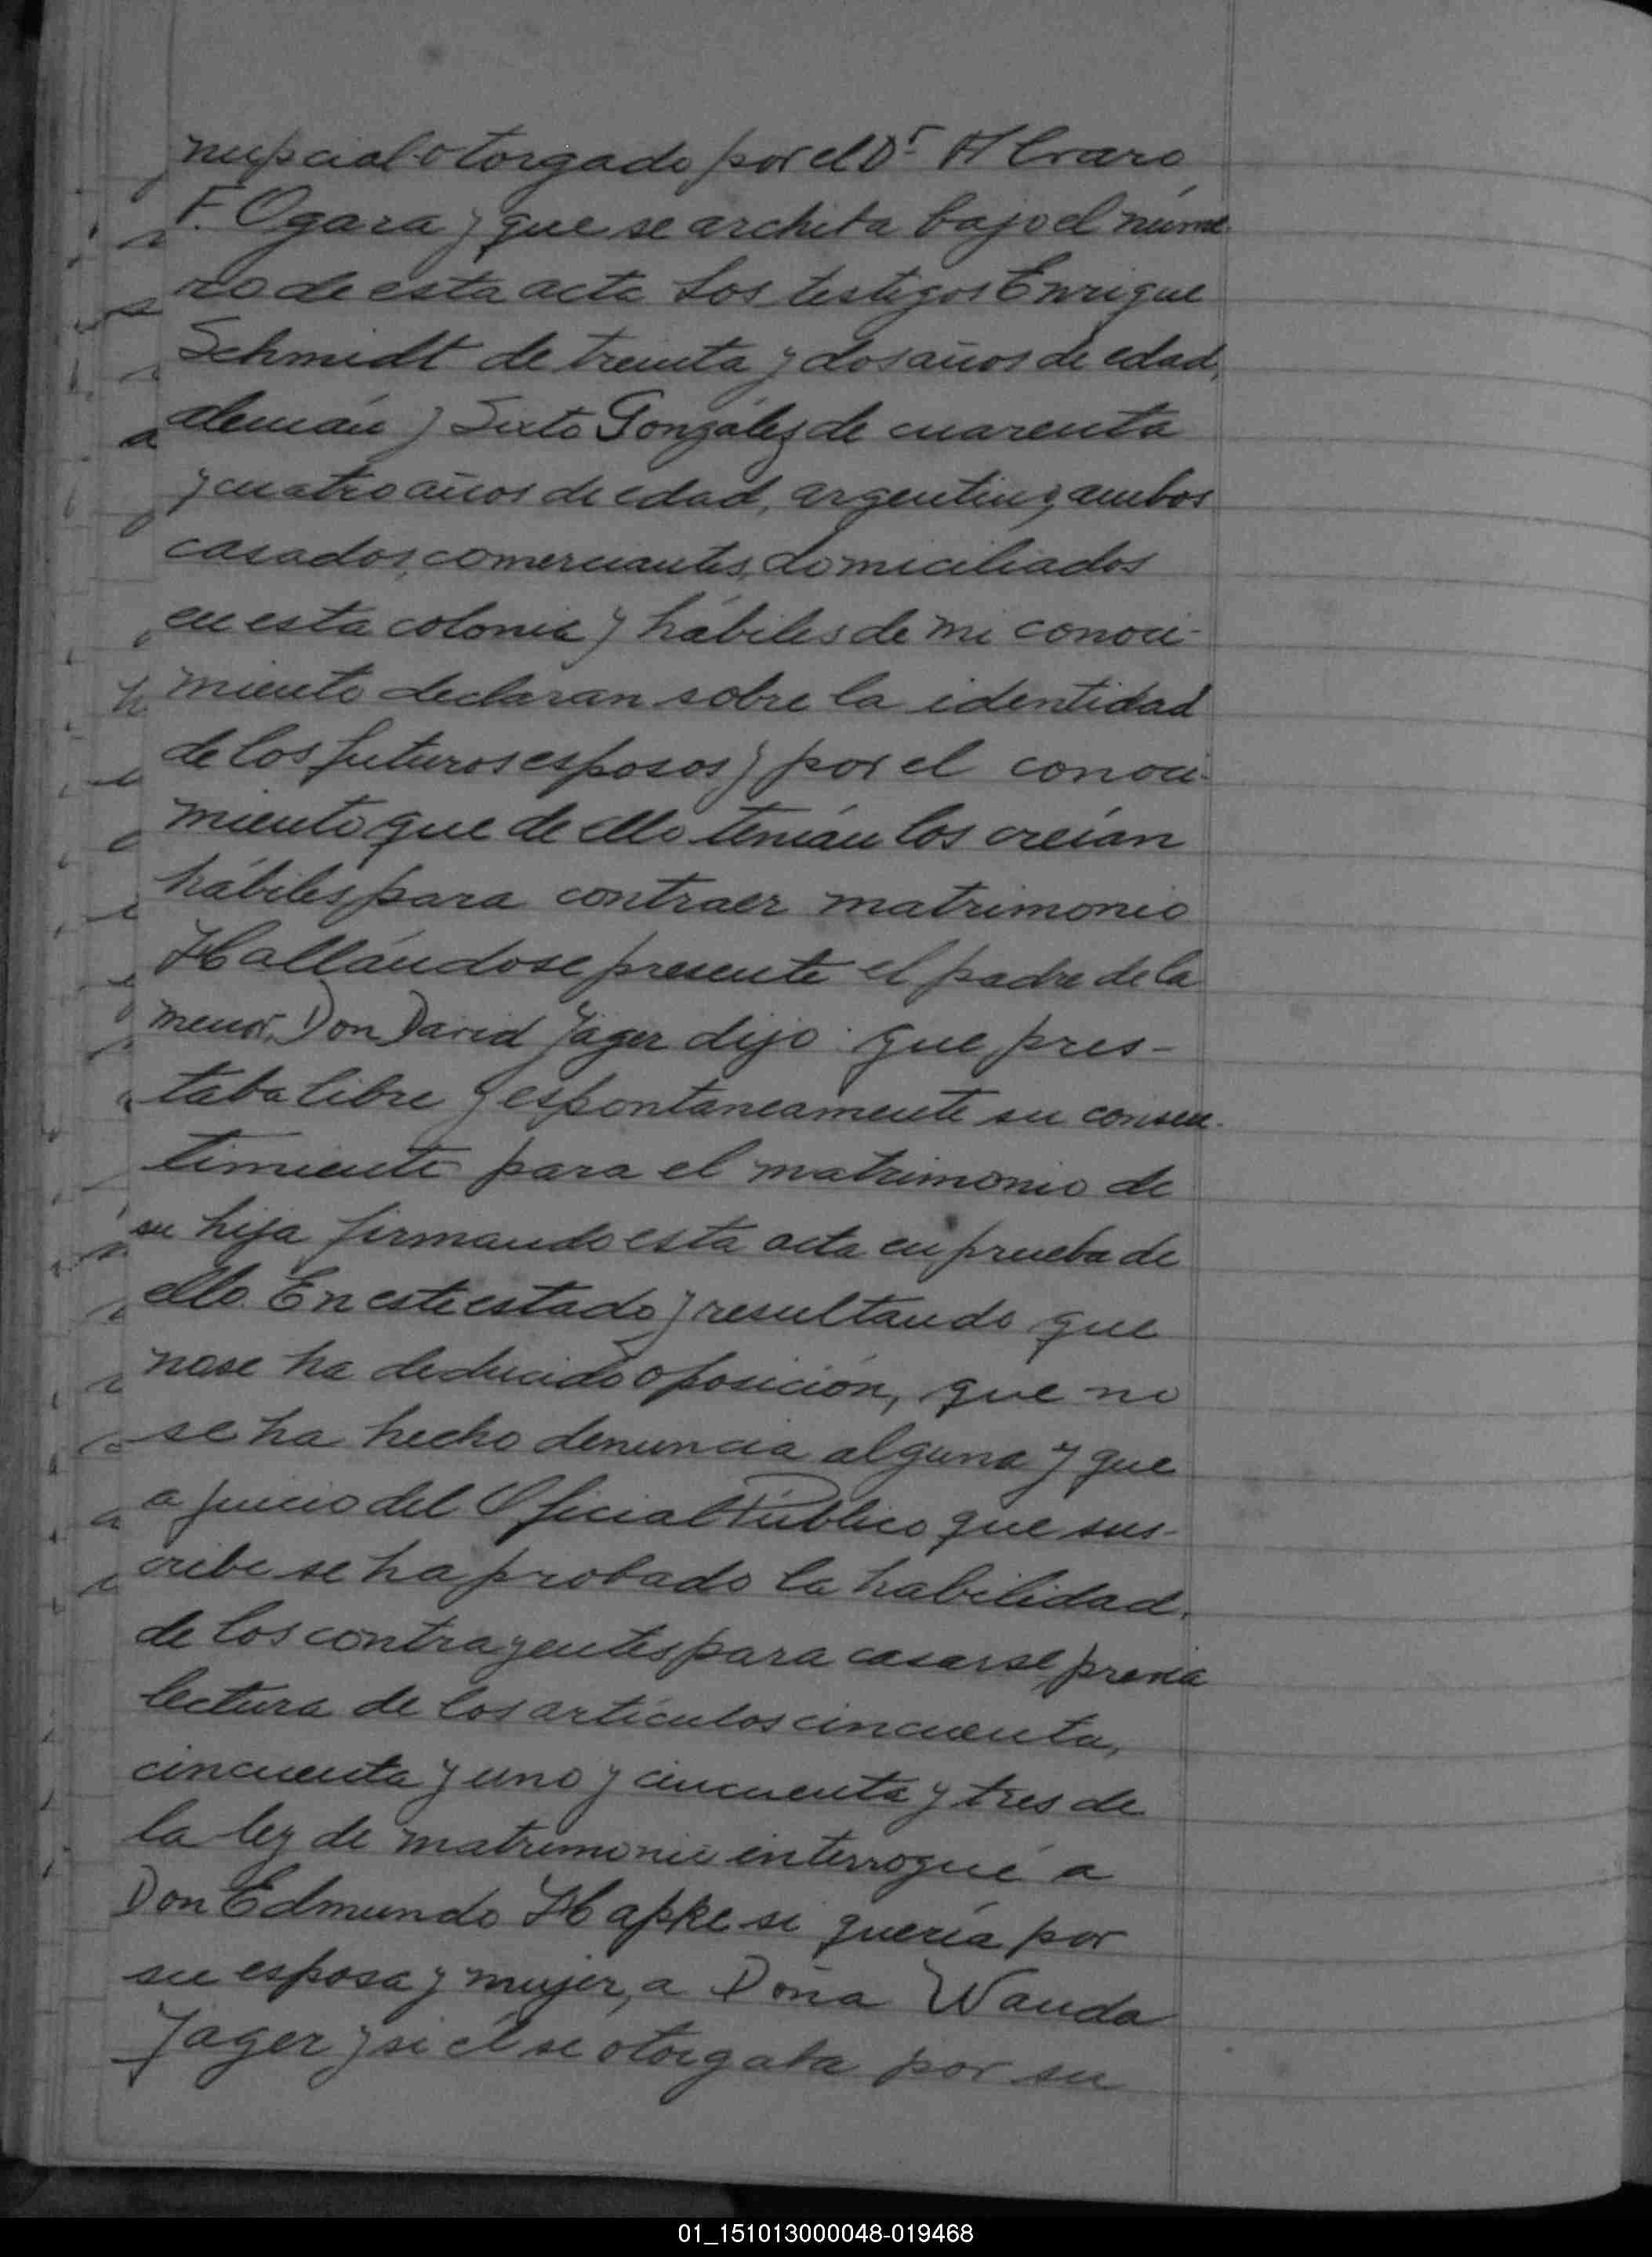 nupcial otorgado por el Dr Alvaro
F. Ogara y que se archiba bajo el núme
ro de esta acta Los testigos Enrique
Schmidt de treinta y dos años de edad,
alemán y Sixto González de cuarenta
y cuatro años de edad, argentino, ambos
casados, comerciantes, domiciliados
en esta colonia y hábiles de mi conoci-
miento declaran sobre la identidad
de los futuros esposos y por el conoci-
miento que de ello tenían los creían
hábiles para contraer matrimonio
Hallándose presente el padre de la
menor, Don David Jager dijo: que pres-
taba libre y espontaneamente su consen-
timiento para el matrimonio de
su hija firmando esta acta en prueba de
ello. En este estado y resultando que
no se ha deducido oposición, que no
se ha hecho denuncia alguna y que
a juicio del Oficial Público que sus-
cribe se ha probado la habilidad
de los contrayentes para casarse, previa
lectura de los artículos cincuenta,
cincuenta y uno y cincuenta y tres de
la ley de matrimonio interrogué a
Don Edmundo Hapke si quería por
su esposa y mujer, a Doña Wanda
Jager y si él se otorgaba por su
01_151013000048-019468